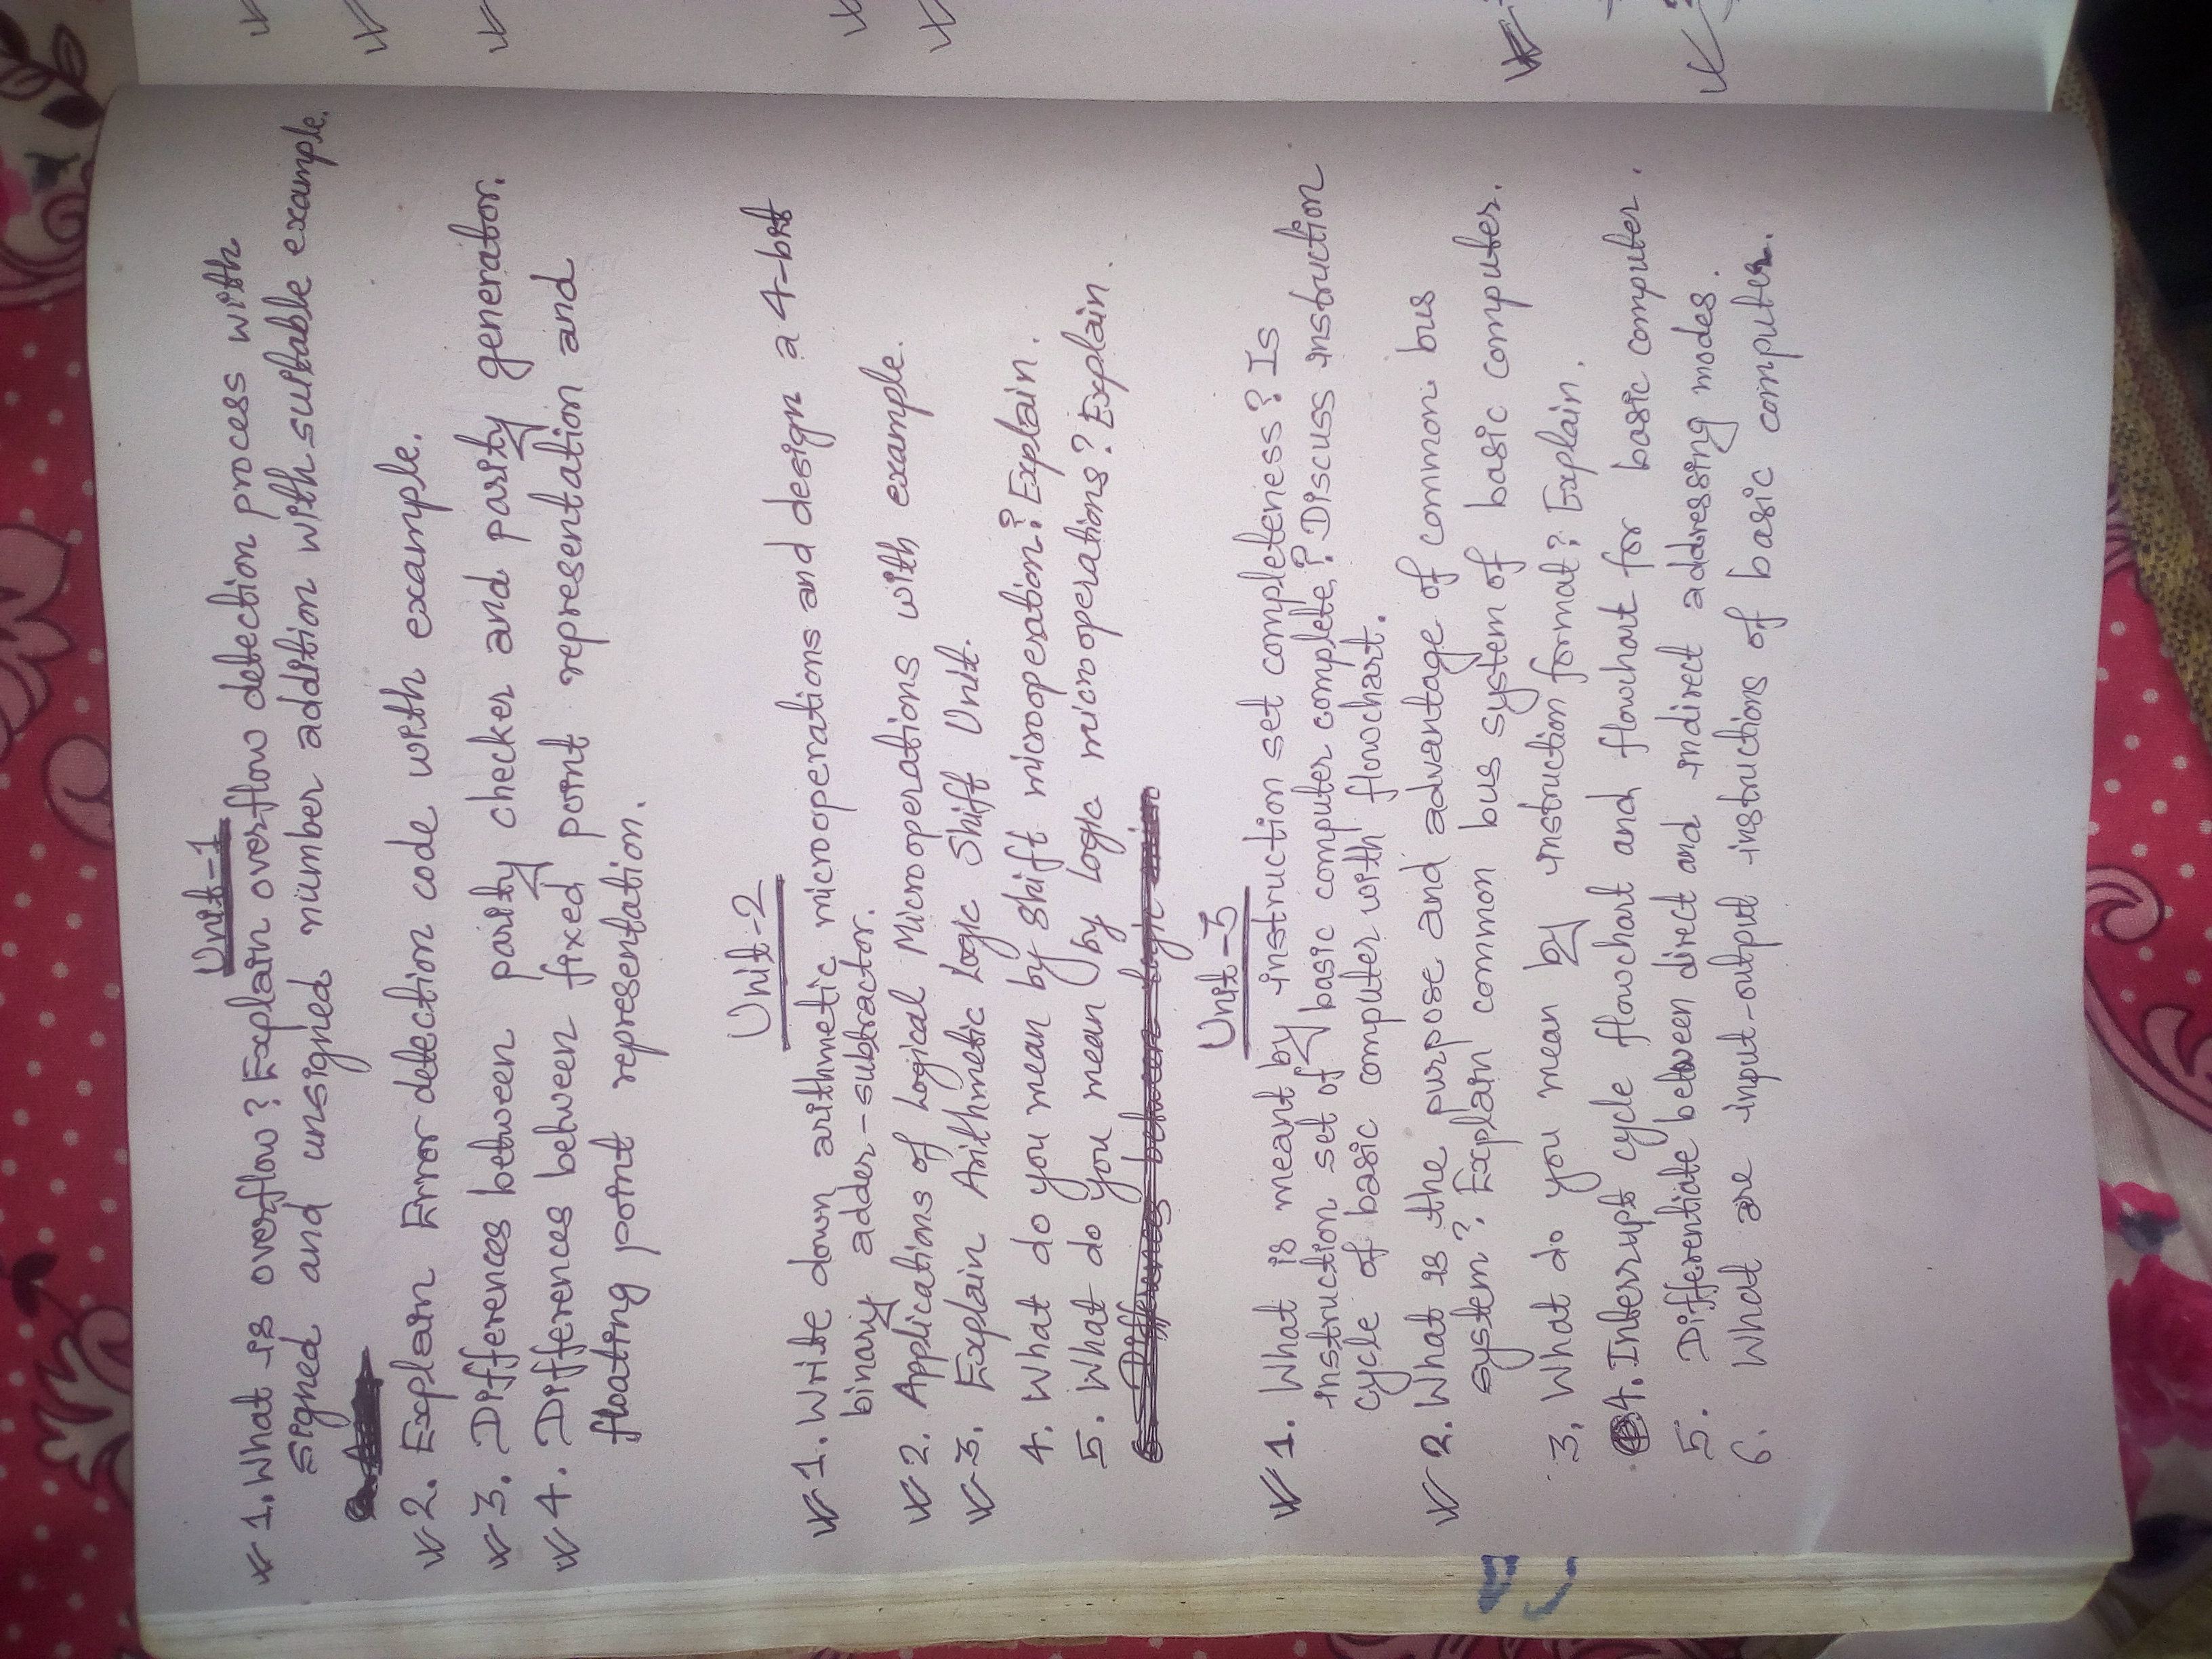 Unit-1
1. What is overflow? Explain overflow detection process with
signed and unsigned number addition with suitable example.
2. Explain Error detection code with example.
3. Differences between parity checker and parity generator.
4. Differences between fixed point representation and
floating point representation.
Unit-2
1. Write down arithmetic microoperations and design a 4-bit
binary adder-subtractor.
2. Applications of Logical Microoperations with example.
3. Explain Arithmetic Logic Shift Unit.
4. What do you mean by shift microoperation? Explain.
5. What do you mean by Logic microoperations? Explain.
6. Differences between logic micro
Unit-3
1. What is meant by instruction set completeness? Is
instruction set of basic computer complete? Discuss instruction
cycle of basic computer with flowchart.
2. What is the purpose and advantage of common bus
system? Explain common bus system of basic computer.
3. What do you mean by instruction format? Explain.
4. Interrupt cycle flowchart and flowchart for basic computer.
5. Differentiate between direct and indirect addressing modes.
6. What are input-output instructions of basic computer.